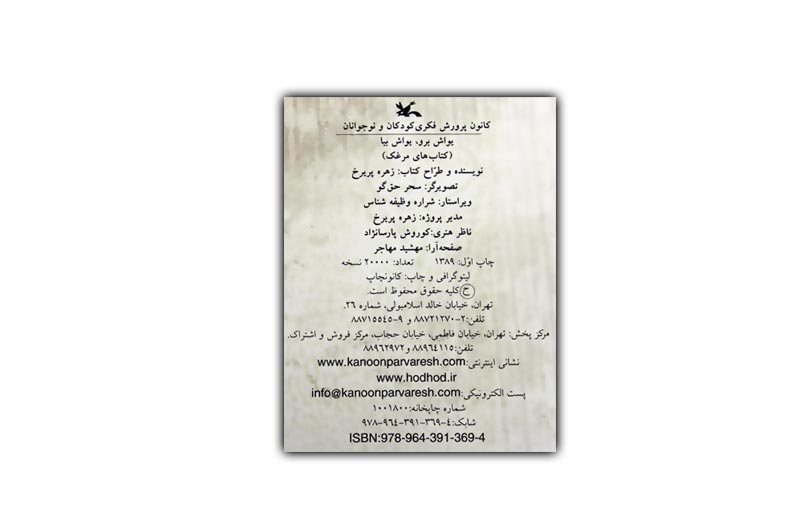 کانون پرورش فکری کودکان و نوجوانان
یواش برو، یواش بیا
(کتاب‌های مرغک)
نویسنده و طرّاح کتاب: زهره پریرخ
تصویرگر: سحر حق‌گو
ویراستار: شراره وظیفه شناس
مدیر پروژه: زهره پریرخ
ناظر هنری: کوروش پارسانژاد
صفحه‌آرا: مهشید مهاجر
چاپ اوّل: ۱۳۸۹ تعداد: ۲۰۰۰۰ نسخه
لیتوگرافی و چاپ: کانونچاپ
ح کلیه حقوق محفوظ است.
تهران، خیابان خالد اسلامبولی، شماره ۲۶.
تلفن: ۲-۸۸۷۲۱۲۷۰ و ۹-۸۸۷۱۵۵۴۵
مرکز پخش: تهران، خیابان فاطمی، خیابان حجاب، مرکز فروش و اشتراک.
تلفن: ۸۸۹۶۴۱۱۵ و ۸۸۹۶۲۹۷۲
نشانی اینترنتی: www.kanoonparvaresh.com
www.hodhod.ir
پست الکترونیکی: info@kanoonparvaresh.com
شماره چاپخانه: ۱۰۰۱۸۰۰
شابک: ۴-۳۶۹-۳۹۱-۹۶۴-۹۷۸
ISBN:978-964-391-369-4